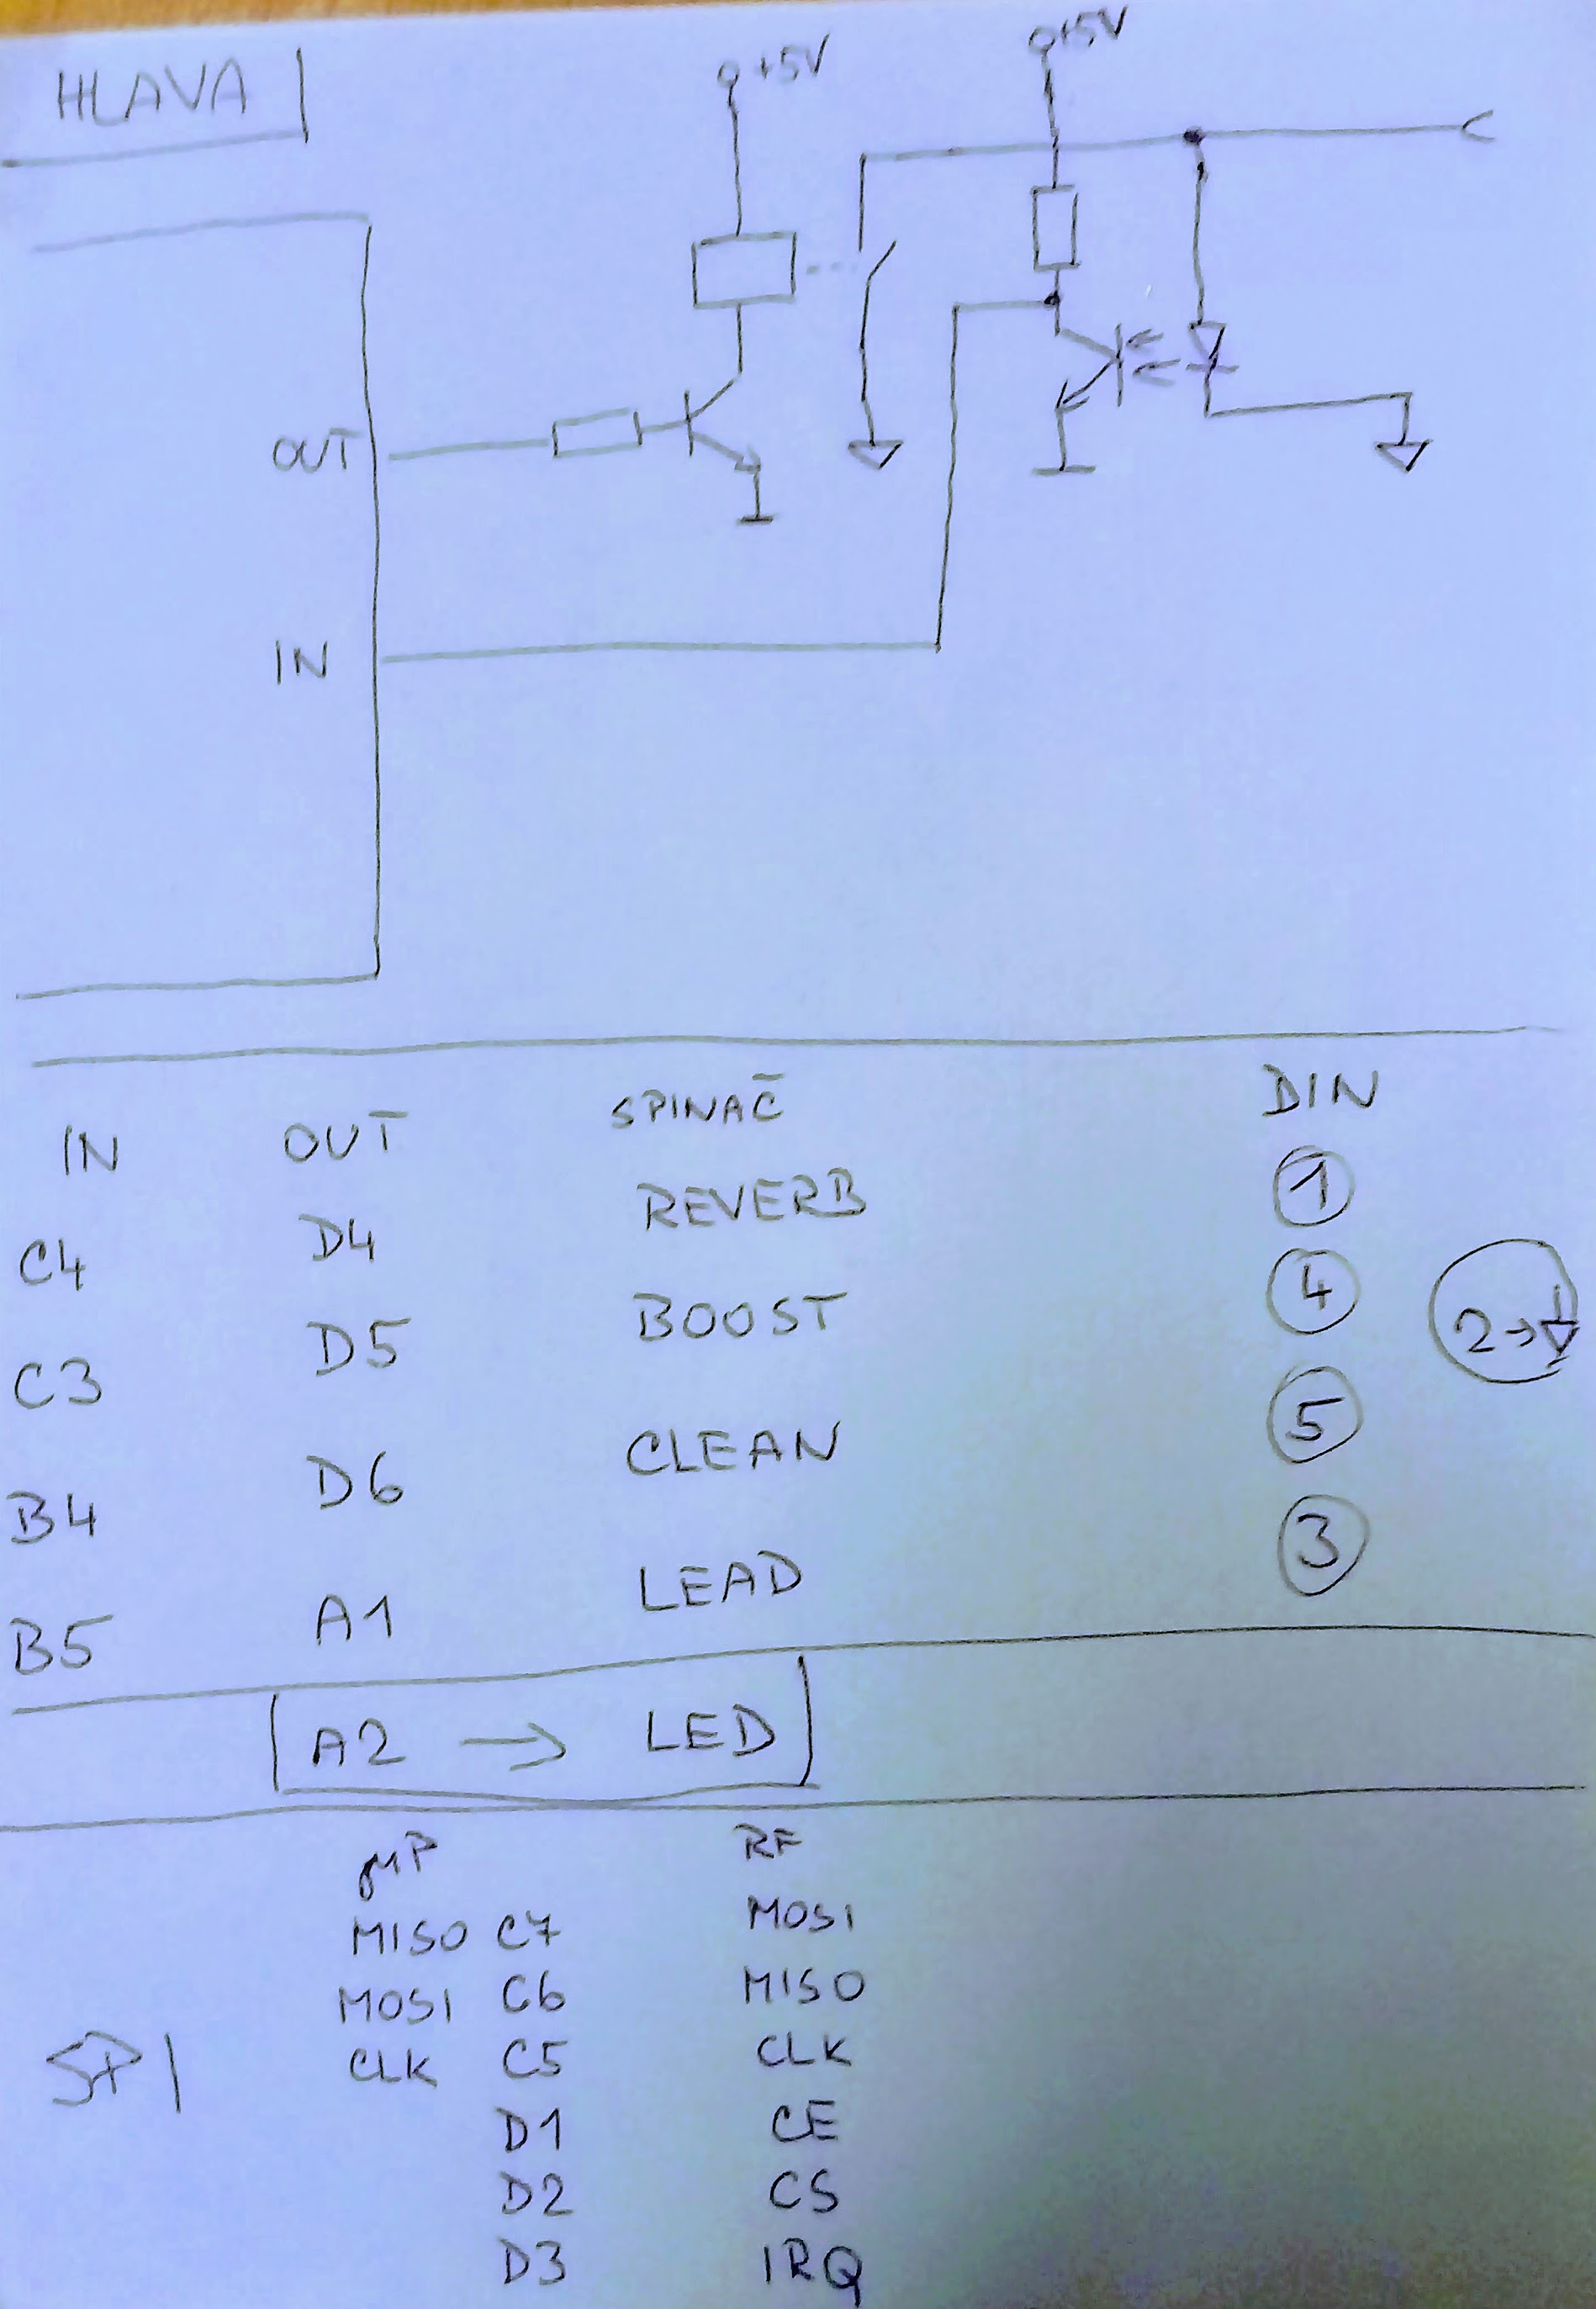 HLAVA
+5V +5V
OUT
IN
IN OUT SPINAČ DIN
C4 D4 REVERB 1
C3 D5 BOOST 4
2→
B4 D6 CLEAN 5
B5 A1 LEAD 3
A2 → LED
μP RF
MISO C7 MOSI
MOSI C6 MISO
SPI CLK C5 CLK
D1 CE
D2 CS
D3 IRQ